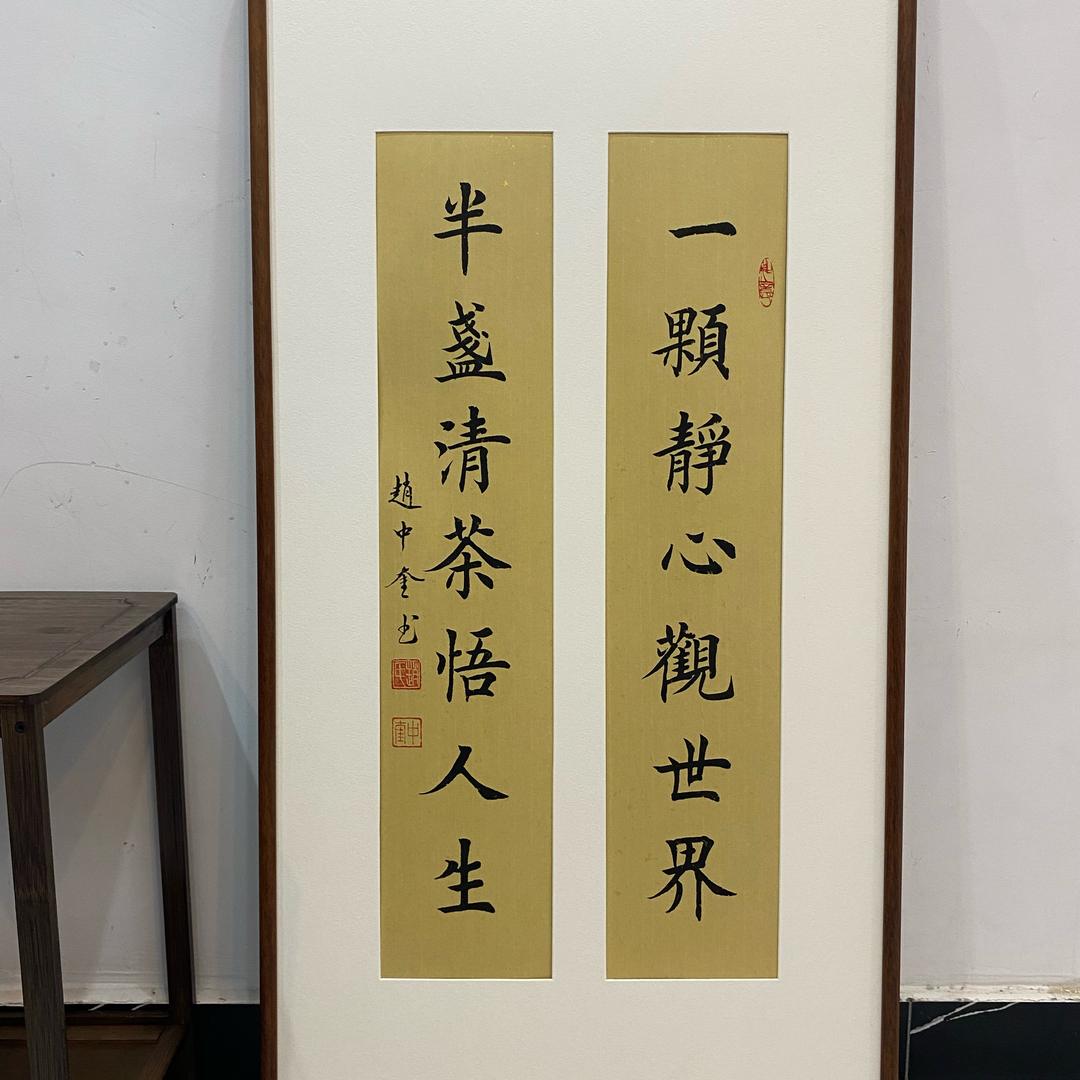 一顆靜心觀世界
半盞清茶悟人生
趙中奎书